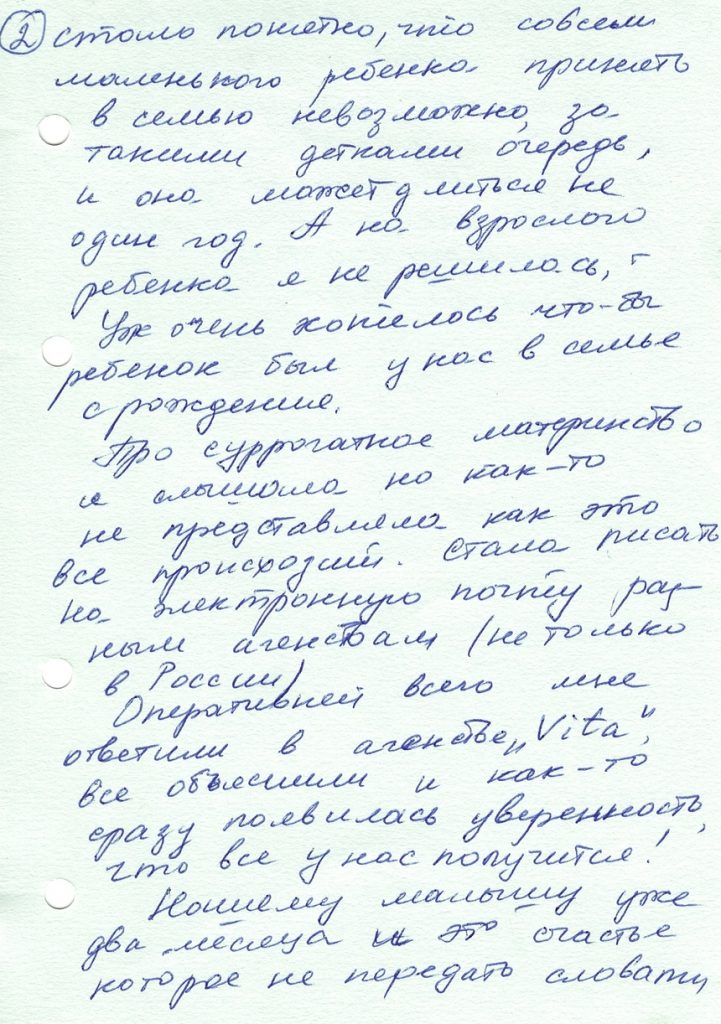 2 стало понятно, что совсем
маленького ребенка принять
в семью невозможно, за
такими детками очередь,
и она может длиться не
один год. А на взрослого
ребенка я не решилась, -
Уж очень хотелось что-бы
ребенок был у нас в семье
с рождения.
Про суррогатное материнство
я слышала но как-то
не представляла как это
все происходит. Стала писать
на электронную почту раз-
ным агенствам (не только
в России)
Оперативней всего мне
ответили в агенстве „Vita",
все объяснили и как-то
сразу появилась уверенность,
что все у нас получится!
Нашему малышу уже
два месяца и это счастье
которое не передать словами,